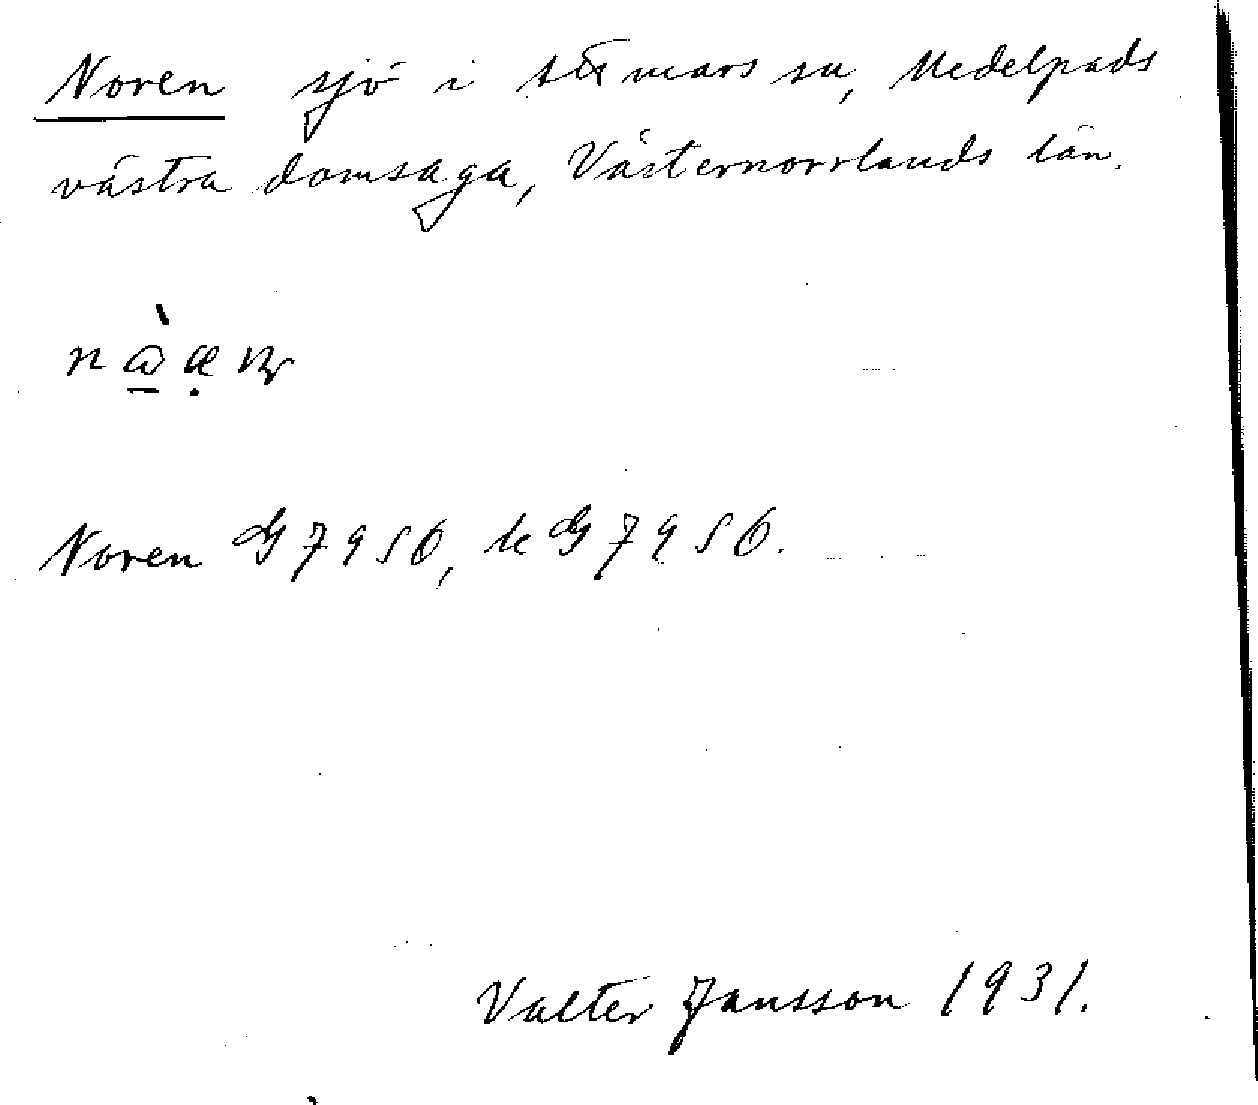 Noren sjö i Attmars sn, Medelpads
västra domsaga, Västernorrlands län.
Noren G 7950, k G 7950.
Valter Jansson 1931.